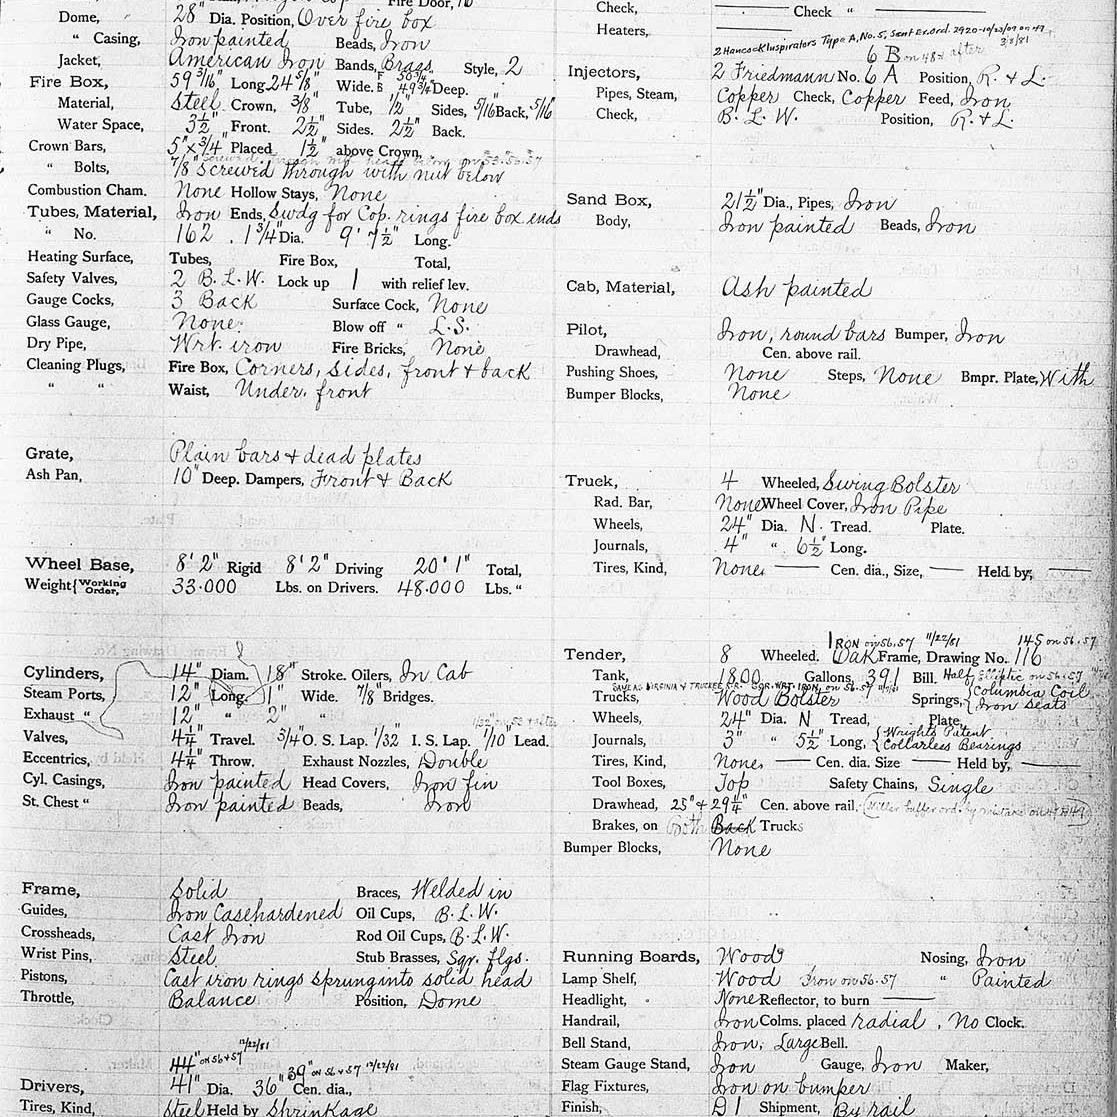 Fire Door,
Dome, 28" Dia. Position, Over fire box
" Casing, Iron painted Beads, Iron
Jacket, American Iron Bands, Brass Style, 2
Fire Box, 59 3/16" Long 24 5/8" Wide. F 50 3/4" B 49 3/4" Deep.
Material, Steel Crown, 3/8" Tube, 1/2" Sides, 5/16 Back, 5/16
Water Space, 3½" Front. 2½" Sides. 2½" Back.
Crown Bars, 5" x 3/4" Placed 1½" above Crown,
" Bolts, 7/8" screwed through with nut below
Combustion Cham. None Hollow Stays, None
Tubes, Material, Iron Ends, Swdg for Cop. rings fire box ends
" No. 162 . 1 3/4" Dia. 9' 7½" Long.
Heating Surface, Tubes, Fire Box, Total,
Safety Valves, 2 B. L. W. Lock up 1 with relief lev.
Gauge Cocks, 3 Back Surface Cock, None
Glass Gauge, None. Blow off " L. S.
Dry Pipe, Wrt. iron Fire Bricks, None
Cleaning Plugs, Fire Box, Corners, sides, front + back
" " Waist, Under. front
Grate, Plain bars + dead plates
Ash Pan, 10" Deep. Dampers, Front + Back
Wheel Base, 8' 2" Rigid 8' 2" Driving 20' 1" Total,
Weight { Working Order, 33.000 Lbs. on Drivers. 48.000 Lbs. "
Cylinders, 14" Diam. 18" Stroke. Oilers, In Cab
Steam Ports, 12" Long, 1" Wide. 7/8" Bridges.
Exhaust " 12" " 2" "
Valves, 4¼" Travel. 3/4" O. S. Lap. 1/32 I. S. Lap. 1/10" Lead.
Eccentrics, 4¼" Throw. Exhaust Nozzles, Double
Cyl. Casings, Iron painted Head Covers, Iron fin
St. Chest " Iron painted Beads, Iron
Frame, Solid Braces, Welded in
Guides, Iron Casehardened Oil Cups, B. L. W.
Crossheads, Cast Iron Rod Oil Cups, B. L. W.
Wrist Pins, Steel Stub Brasses, Sqr. flgs.
Pistons, Cast iron rings sprung into solid head
Throttle, Balance Position, Dome
12/22/81
44" on 56 + 57 39" on 56 + 57 12/22/81
Drivers, 41" Dia. 36" Cen. dia.,
Tires, Kind, Steel Held by Shrinkage
Check, Check "
Heaters,
2 Hancock Inspirators Type A, No. 5, Sent Ex. Ord. 2920-10/23/09 on 49
6 B on 48+ after 3/8/81
Injectors, 2 Friedmann No. 6 A Position, R. + L.
Pipes, Steam, Copper Check, Copper Feed, Iron
Check, B. L. W. Position, R. + L.
Sand Box, 21½" Dia., Pipes, Iron
Body, Iron painted Beads, Iron
Cab, Material, Ash painted
Pilot, Iron, round bars Bumper, Iron
Drawhead, Cen. above rail.
Pushing Shoes, None Steps, None Bmpr. Plate, With
Bumper Blocks, None
Truck, 4 Wheeled, Swing Bolster
Rad. Bar, None Wheel Cover, Iron Pipe
Wheels, 24" Dia. N. Tread. Plate.
Journals, 4" " 6½" Long.
Tires, Kind, None. Cen. dia., Size, Held by,
IRON on 56.57 11/22/81 145 on 56.57
Tender, 8 Wheeled. Oak Frame, Drawing No. 116
Tank, 1800 Gallons, 391 Bill. Half Elliptic on 56.57
SAME AS VIRGINIA & TRUCKEE R.R. SQR. WRT. IRON on 56.57
Trucks, Wood Bolster Springs, { Columbia Coil Iron Seats
Wheels, 24" Dia. N Tread, Plate,
Journals, 3" " 5½" Long, { Wrights Patent Collarless Bearings
Tires, Kind, None. Cen. dia. Size Held by,
Tool Boxes, Top Safety Chains, Single
Drawhead, 25" + 29¼" Cen. above rail. (Miller buffer ord. by mistake on 49)
Brakes, on Both Back Trucks
Bumper Blocks, None
Running Boards, Wood Nosing, Iron
Lamp Shelf, Wood Iron on 56.57 " Painted
Headlight, None Reflector, to burn
Handrail, Iron Colms. placed radial , No Clock.
Bell Stand, Iron, Large Bell.
Steam Gauge Stand, Iron Gauge, Iron Maker,
Flag Fixtures, Iron on bumper
Finish, D 1 Shipment, By rail